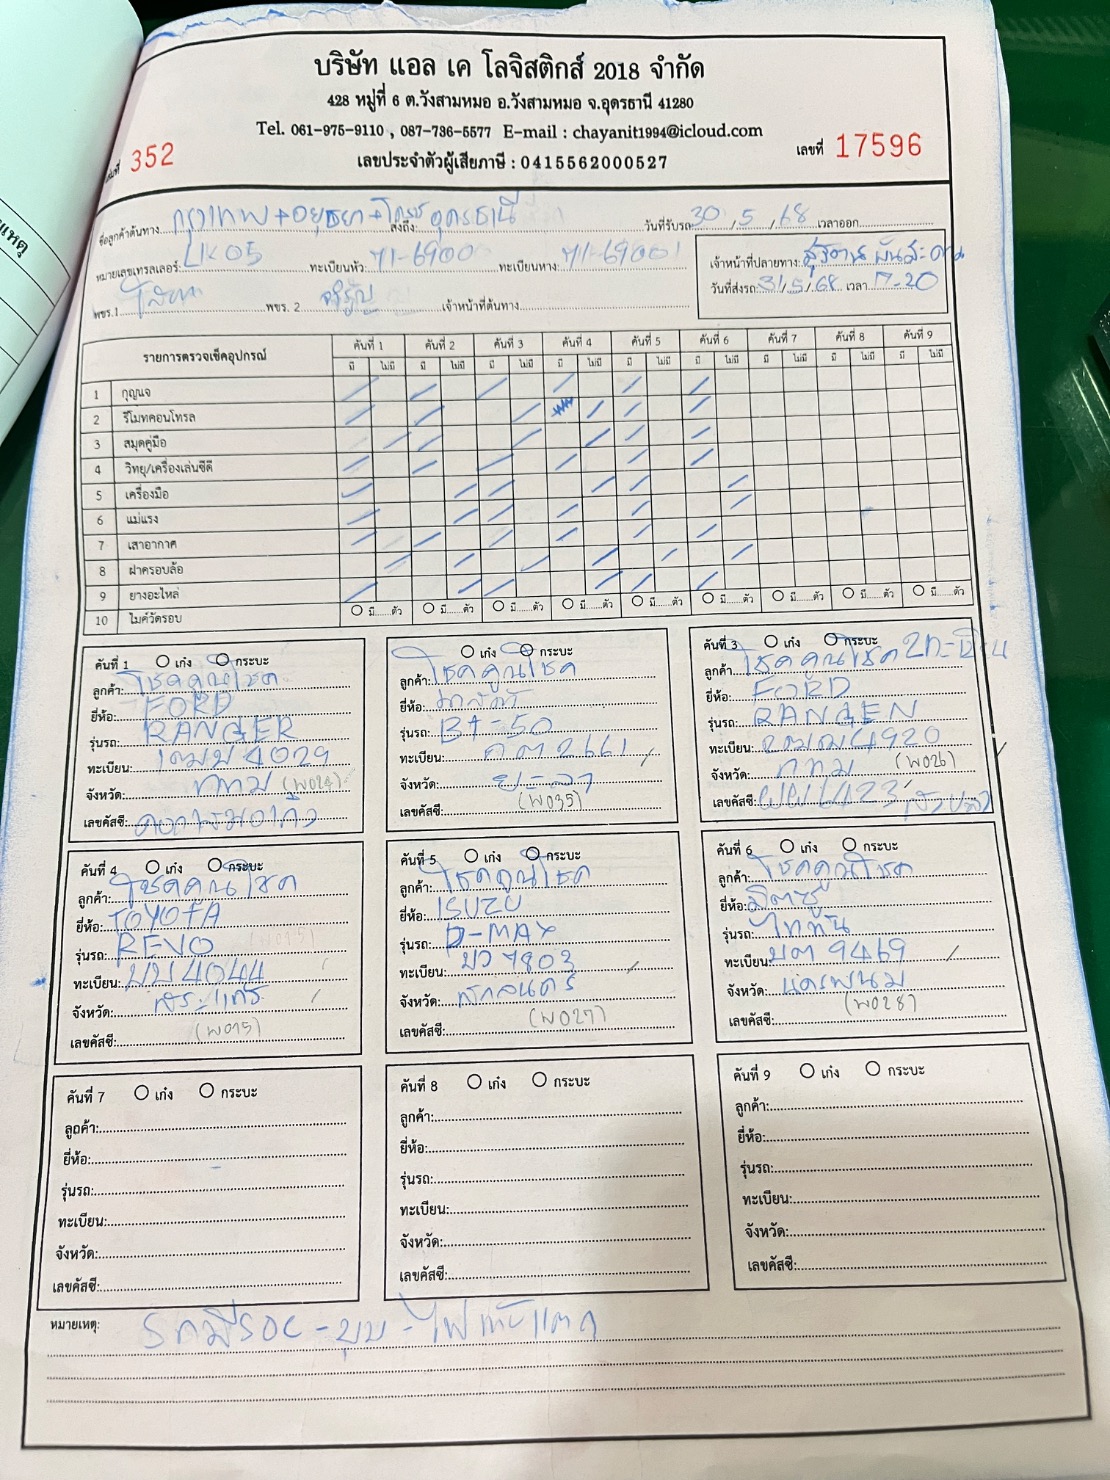 บริษัท แอล เค โลจิสติกส์ 2018 จำกัด
428 หมู่ที่ 6 ต.วังสามหมอ อ.วังสามหมอ จ.อุดรธานี 41280
Tel. 061-975-9110 , 087-736-5577 E-mail : chayanit1994@icloud.com
352 เลขประจำตัวผู้เสียภาษี : 0415562000527 เลขที่ 17596
ชื่อลูกค้าต้นทาง กรุงเทพ+อยุธยา+โคราช ส่งถึง: อุดรธานี วันที่รับรถ 30/5/68 เวลาออก
หมายเลขเทรลเลอร์: LK05 ทะเบียนหัว: 71-6900 ทะเบียนหาง: 71-6901 เจ้าหน้าที่ปลายทาง:
พขร.1 พขร. 2 เจ้าหน้าที่ต้นทาง วันที่ส่งรถ: 31/5/68 เวลา 17-20
รายการตรวจเช็คอุปกรณ์ คันที่ 1 คันที่ 2 คันที่ 3 คันที่ 4 คันที่ 5 คันที่ 6 คันที่ 7 คันที่ 8 คันที่ 9
มี ไม่มี มี ไม่มี มี ไม่มี มี ไม่มี มี ไม่มี มี ไม่มี มี ไม่มี มี ไม่มี มี ไม่มี
1 กุญแจ
2 รีโมทคอนโทรล
3 สมุดคู่มือ
4 วิทยุ/เครื่องเล่นซีดี
5 เครื่องมือ
6 แม่แรง
7 เสาอากาศ
8 ฝาครอบล้อ
9 ยางอะไหล่
10 ไมค์วัดรอบ มี......ตัว มี......ตัว มี......ตัว มี......ตัว มี......ตัว มี......ตัว มี......ตัว มี......ตัว มี......ตัว
คันที่ 1 เก๋ง กระบะ
ลูกค้า: โชคคูณโชค
ยี่ห้อ: FORD
รุ่นรถ: RANGER
ทะเบียน: 4029
จังหวัด: กทม
เลขคัสซี:
เก๋ง กระบะ
ลูกค้า: โชคคูณโชค
ยี่ห้อ: มาสด้า
รุ่นรถ: BT-50
ทะเบียน: 2661
จังหวัด: ยะลา
เลขคัสซี: (W035)
คันที่ 3 เก๋ง กระบะ
ลูกค้า: โชคคูณโชค
ยี่ห้อ: FORD
รุ่นรถ: RANGEN
ทะเบียน: 4920
จังหวัด: กทม (W026)
เลขคัสซี:
คันที่ 4 เก๋ง กระบะ
ลูกค้า: โชคคูณโชค
ยี่ห้อ: TOYOTA
รุ่นรถ: REVO
ทะเบียน: บบ 4044
จังหวัด:
เลขคัสซี: (W015)
คันที่ 5 เก๋ง กระบะ
ลูกค้า: โชคคูณโชค
ยี่ห้อ: ISUZU
รุ่นรถ: D-MAX
ทะเบียน: บว 7803
จังหวัด: สกลนคร
เลขคัสซี: (W027)
คันที่ 6 เก๋ง กระบะ
ลูกค้า: โชคคูณโชค
ยี่ห้อ: มิตซู
รุ่นรถ: ไททัน
ทะเบียน: 9469
จังหวัด: นครพนม
เลขคัสซี: (W028)
คันที่ 7 เก๋ง กระบะ
ลูกค้า:
ยี่ห้อ:
รุ่นรถ:
ทะเบียน:
จังหวัด:
เลขคัสซี:
คันที่ 8 เก๋ง กระบะ
ลูกค้า:
ยี่ห้อ:
รุ่นรถ:
ทะเบียน:
จังหวัด:
เลขคัสซี:
คันที่ 9 เก๋ง กระบะ
ลูกค้า:
ยี่ห้อ:
รุ่นรถ:
ทะเบียน:
จังหวัด:
เลขคัสซี:
หมายเหตุ: รถมีรอย-บุบ-ไฟท้ายแตก